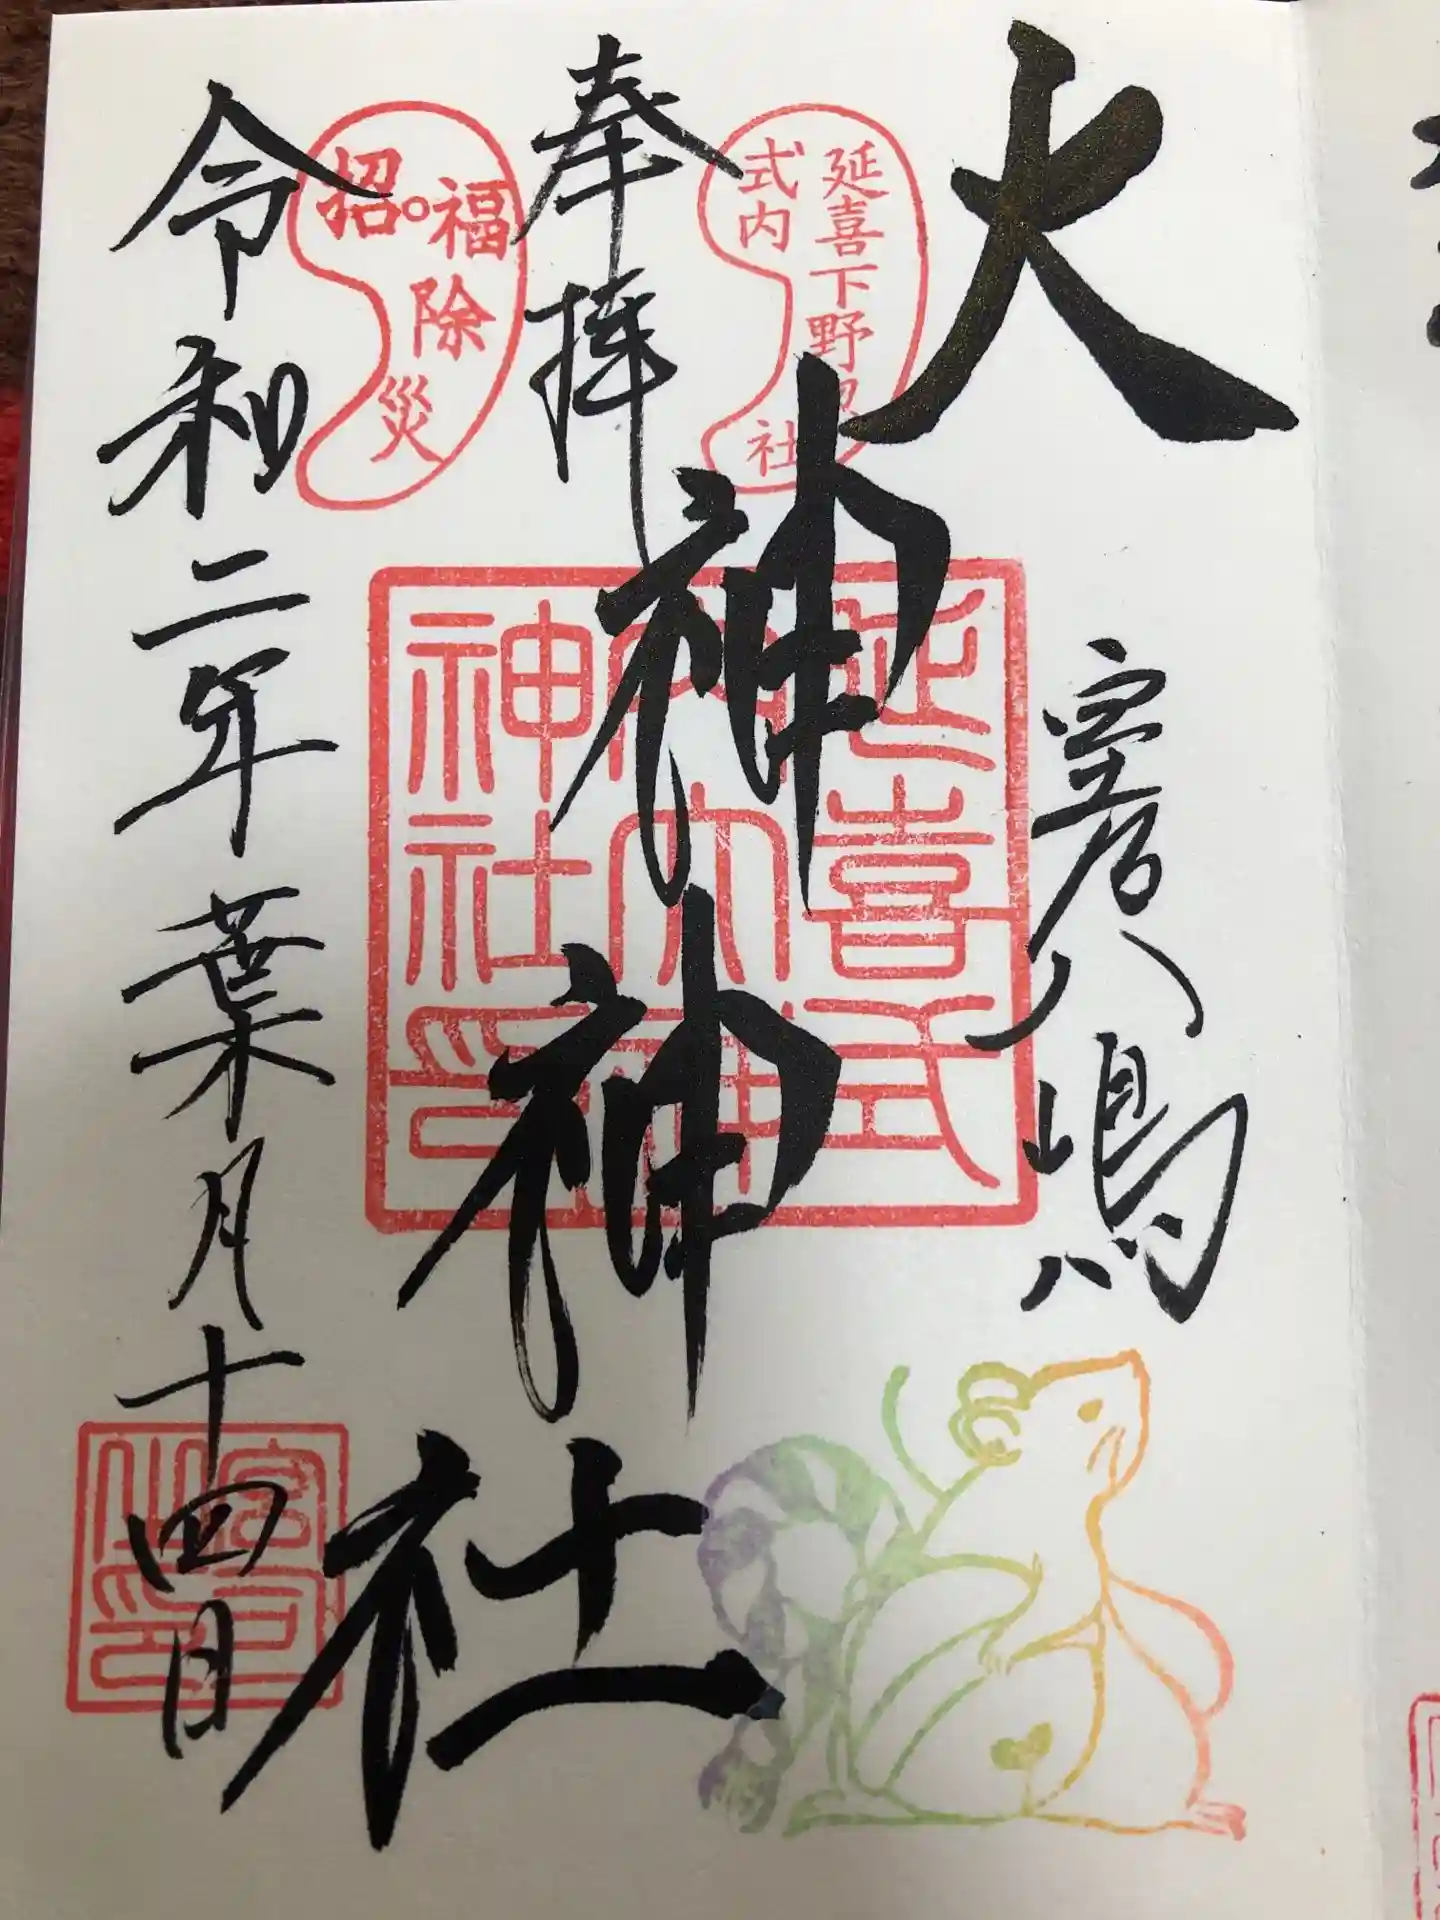 大神神社
室八嶋
延喜下野
式内
社
奉拝
招福
除
災
延喜式
内大神
神社印
令和二年葉月十四日
宮司
之印